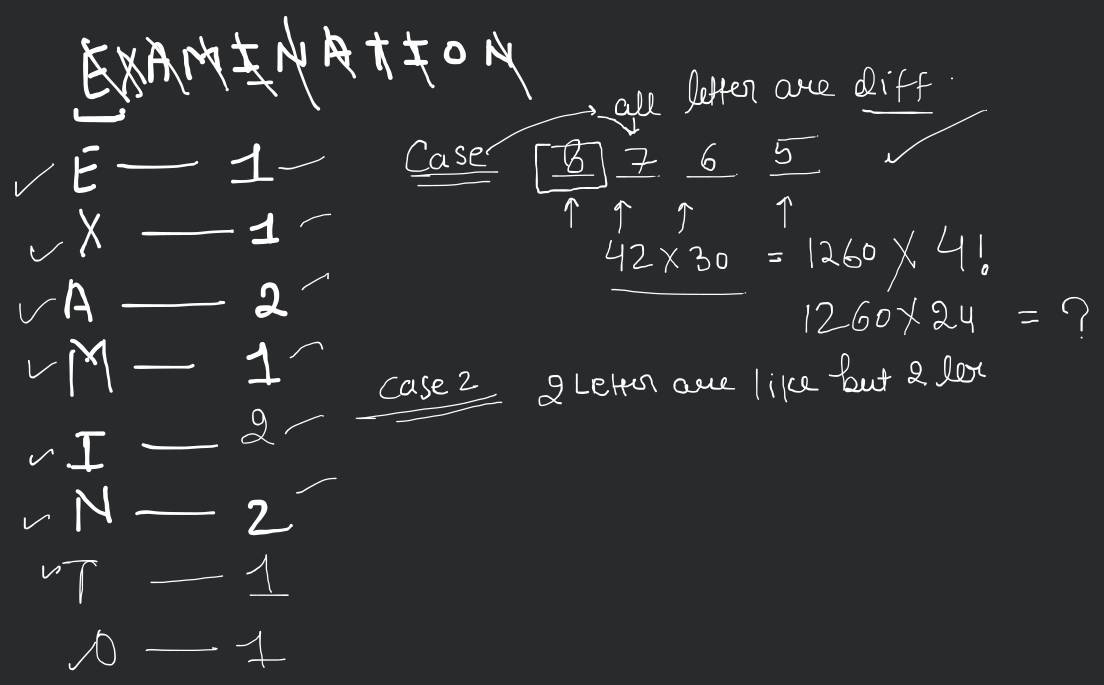 EXAMINATION
all letter are diff.
Case 8 7 6 5
E — 1
X — 1
A — 2
M — 1
I — 2
N — 2
T — 1
O — 1
42 X 30 = 1260 X 4!
1260 X 24 = ?
Case 2 2 Letter are like but 2